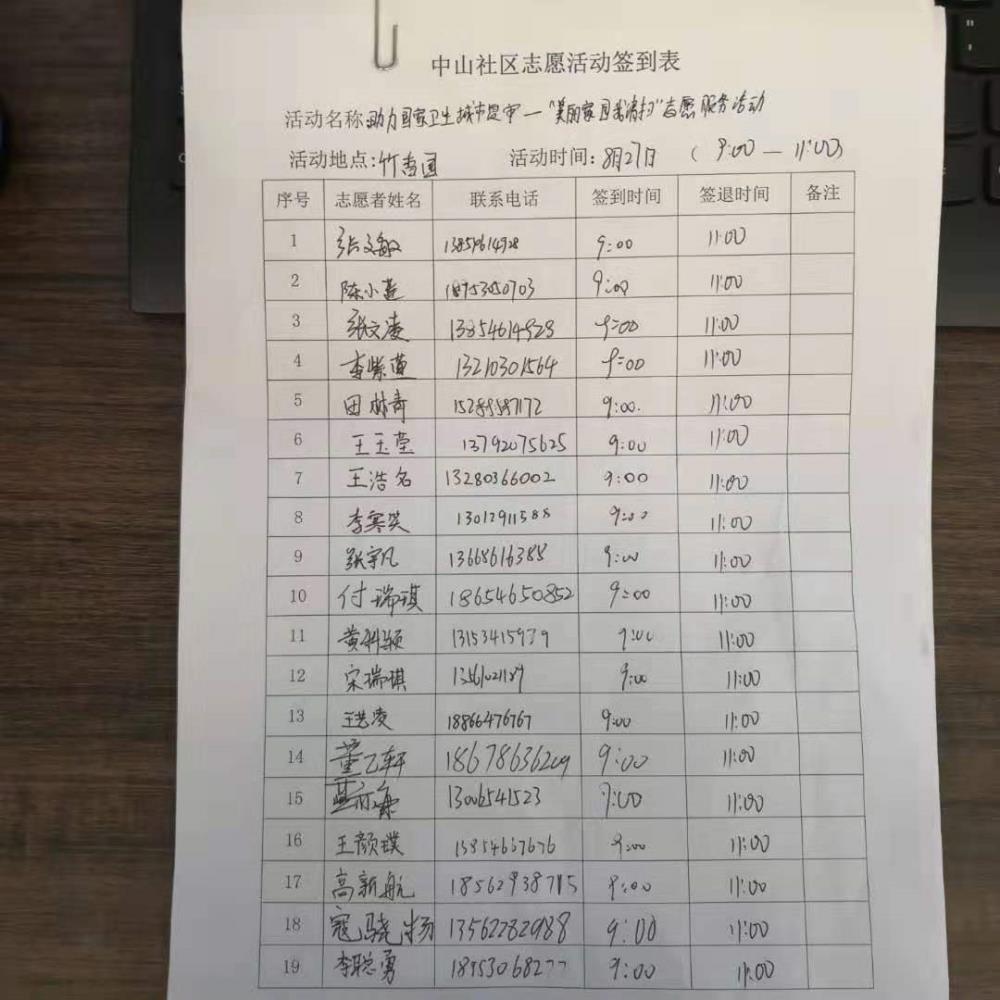 中山社区志愿活动签到表
活动名称 助力国家卫生城市复审—"美丽家园我清扫"志愿服务活动
活动地点:竹青园 活动时间:8月27日 (9:00—11:00)
序号 志愿者姓名 联系电话 签到时间 签退时间 备注
1 张文敏 9:00 11:00
2 陈小莲 18953050703 9:00 11:00
3 张文凌 13854614928 9:00 11:00
4 李紫莲 13210301564 9:00 11:00
5 田林青 15289587172 9:00. 11:00
6 王玉莹 13792075625 9:00 11:00
7 王浩名 13280366002 9:00 11:00
8 李寒笑 13012911588 9:00 11:00
9 张宇凡 13665616388 9:00 11:00
10 付瑞琪 18654650852 9:00 11:00
11 黄钶颖 13153415939 9:00 11:00
12 宋瑞琪 13561021189 9:00 11:00
13 王艺凌 18866476767 9:00 11:00
14 董乙轩 18678636209 9:00 11:00
15 9:00 11:00
16 王颜璞 13854667676 9:00 11:00
17 高新航 18562938715 9:00 11:00
18 寇骁扬 13562282988 9:00 11:00
19 李聪勇 18953068277 9:00 11:00